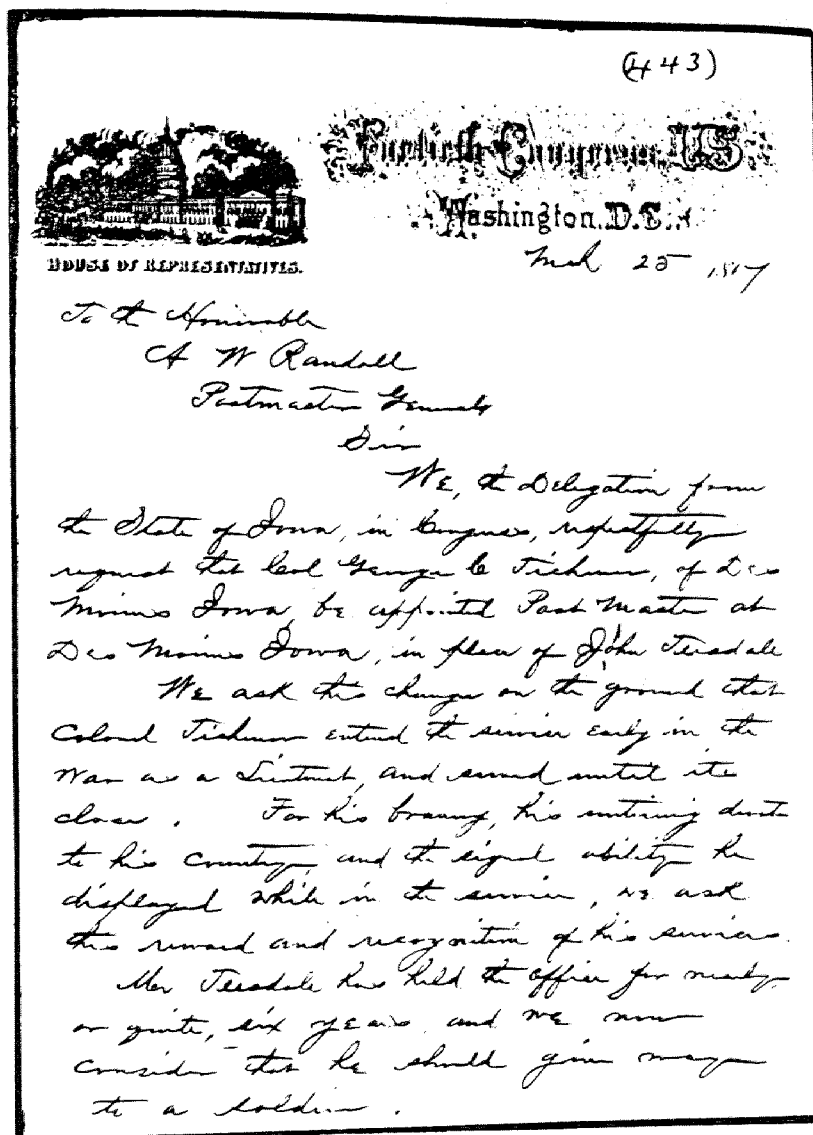 (443)
Fortieth Congress U.S.
Washington, D.C.
HOUSE OF REPRESENTATIVES.
Mch 25 1867
To the Honorable
A W Randall
Postmaster General
Sir
We, the Delegation from
the State of Iowa, in Congress, respectfully
request that Col George C Tichenor, of Des
Moines Iowa, be appointed Post Master at
Des Moines Iowa, in place of John Teesdale
We ask this change on the ground that
Colonel Tichenor entered the service early in the
War as a Lieutenant, and served until its
close. For his bravery, his untiring
to his country, and the signal ability he
displayed while in the service, we ask
this reward and recognition of his services.
Mr Teesdale has held the office for nearly,
or quite, six years, and we now
consider that he should give way
to a soldier.